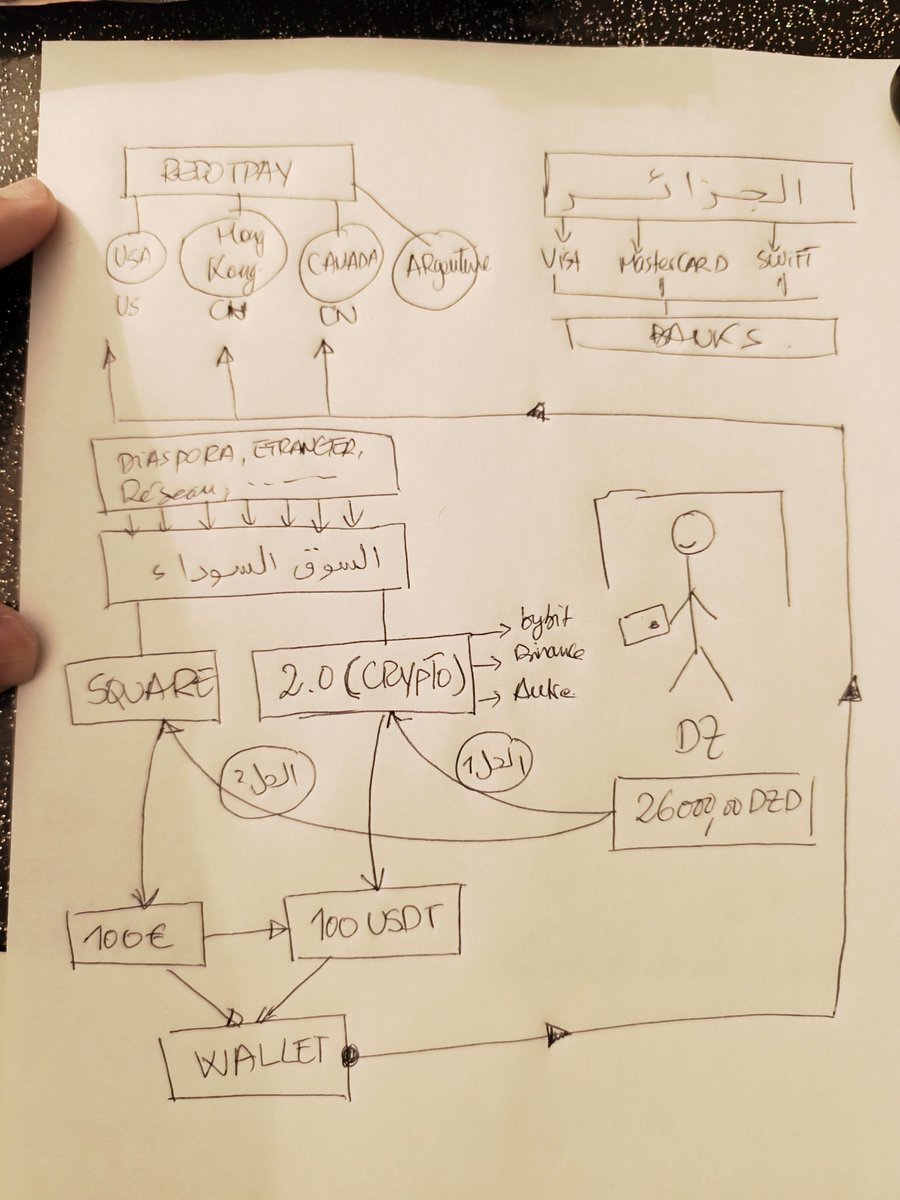 REDOTPAY
USA
US
Hong
Kong
CN
CANADA
CN
ARgentine
الجزائر
VISA
MasterCARD
SWIFT
BANKS.
DIASPORA, ETRANGER,
Réseau,
السوق السوداء
SQUARE
2.0 (CRYPTO)
bybit
Binance
Autre
DZ
26000,00 DZD
الحل 2
الحل 1
100€
100 USDT
WALLET